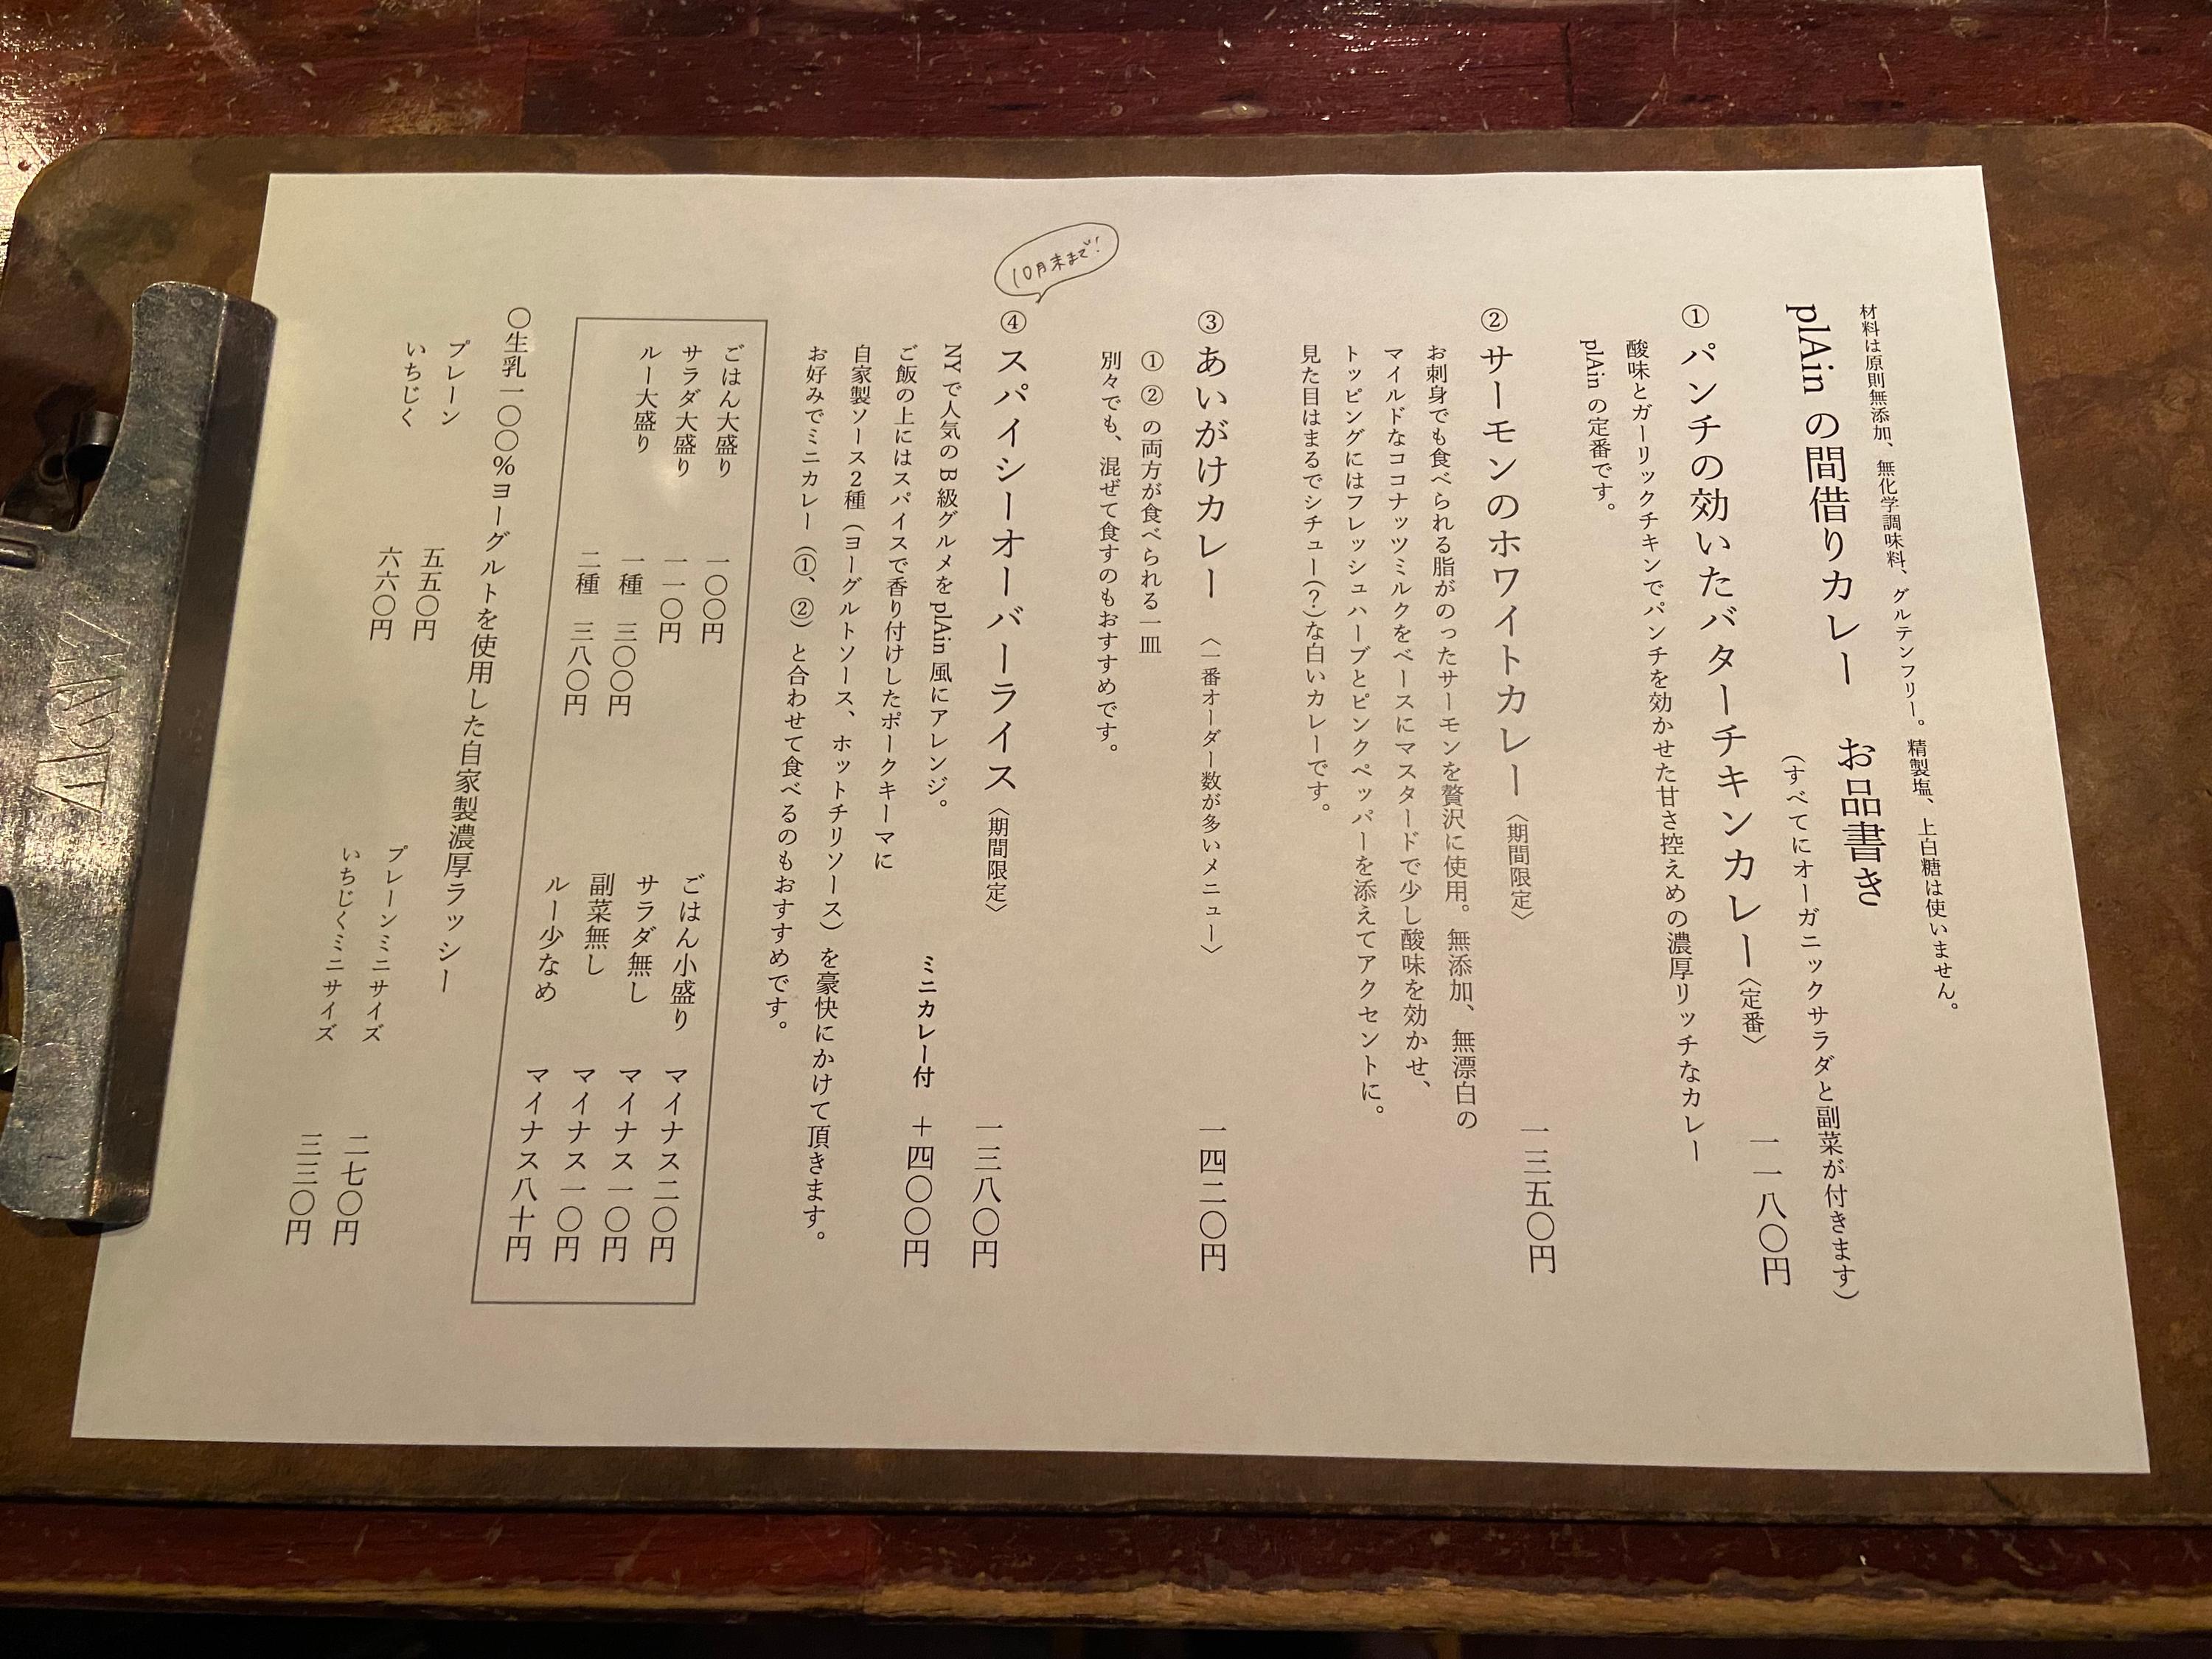 材料は原則無添加、無化学調味料、グルテンフリー。精製塩、上白糖は使いません。
plAin の間借りカレー　お品書き
(すべてにオーガニックサラダと副菜が付きます)
① パンチの効いたバターチキンカレー〈定番〉　一一八〇円
酸味とガーリックチキンでパンチを効かせた甘さ控えめの濃厚リッチなカレー
plAin の定番です。
② サーモンのホワイトカレー〈期間限定〉　一三五〇円
お刺身でも食べられる脂がのったサーモンを贅沢に使用。無添加、無漂白の
マイルドなココナッツミルクをベースにマスタードで少し酸味を効かせ、
トッピングにはフレッシュハーブとピンクペッパーを添えてアクセントに。
見た目はまるでシチュー(？)な白いカレーです。
③ あいがけカレー　〈一番オーダー数が多いメニュー〉　一四二〇円
①②の両方が食べられる一皿
別々でも、混ぜて食すのもおすすめです。
10月末まで!
④ スパイシーオーバーライス〈期間限定〉　一三八〇円
NY で人気の B 級グルメを plAin 風にアレンジ。
ミニカレー付　＋四〇〇円
ご飯の上にはスパイスで香り付けしたポークキーマに
自家製ソース２種（ヨーグルトソース、ホットチリソース）を豪快にかけて頂きます。
お好みでミニカレー（①、②）と合わせて食べるのもおすすめです。
ごはん大盛り　一〇〇円　ごはん小盛り　マイナス二〇円
サラダ大盛り　一一〇円　サラダ無し　マイナス一〇円
ルー大盛り　一種　三〇〇円　副菜無し　マイナス一〇円
二種　三八〇円　ルー少なめ　マイナス八十円
〇生乳一〇〇％ヨーグルトを使用した自家製濃厚ラッシー
プレーン　五五〇円　プレーンミニサイズ　二七〇円
いちじく　六六〇円　いちじくミニサイズ　三三〇円